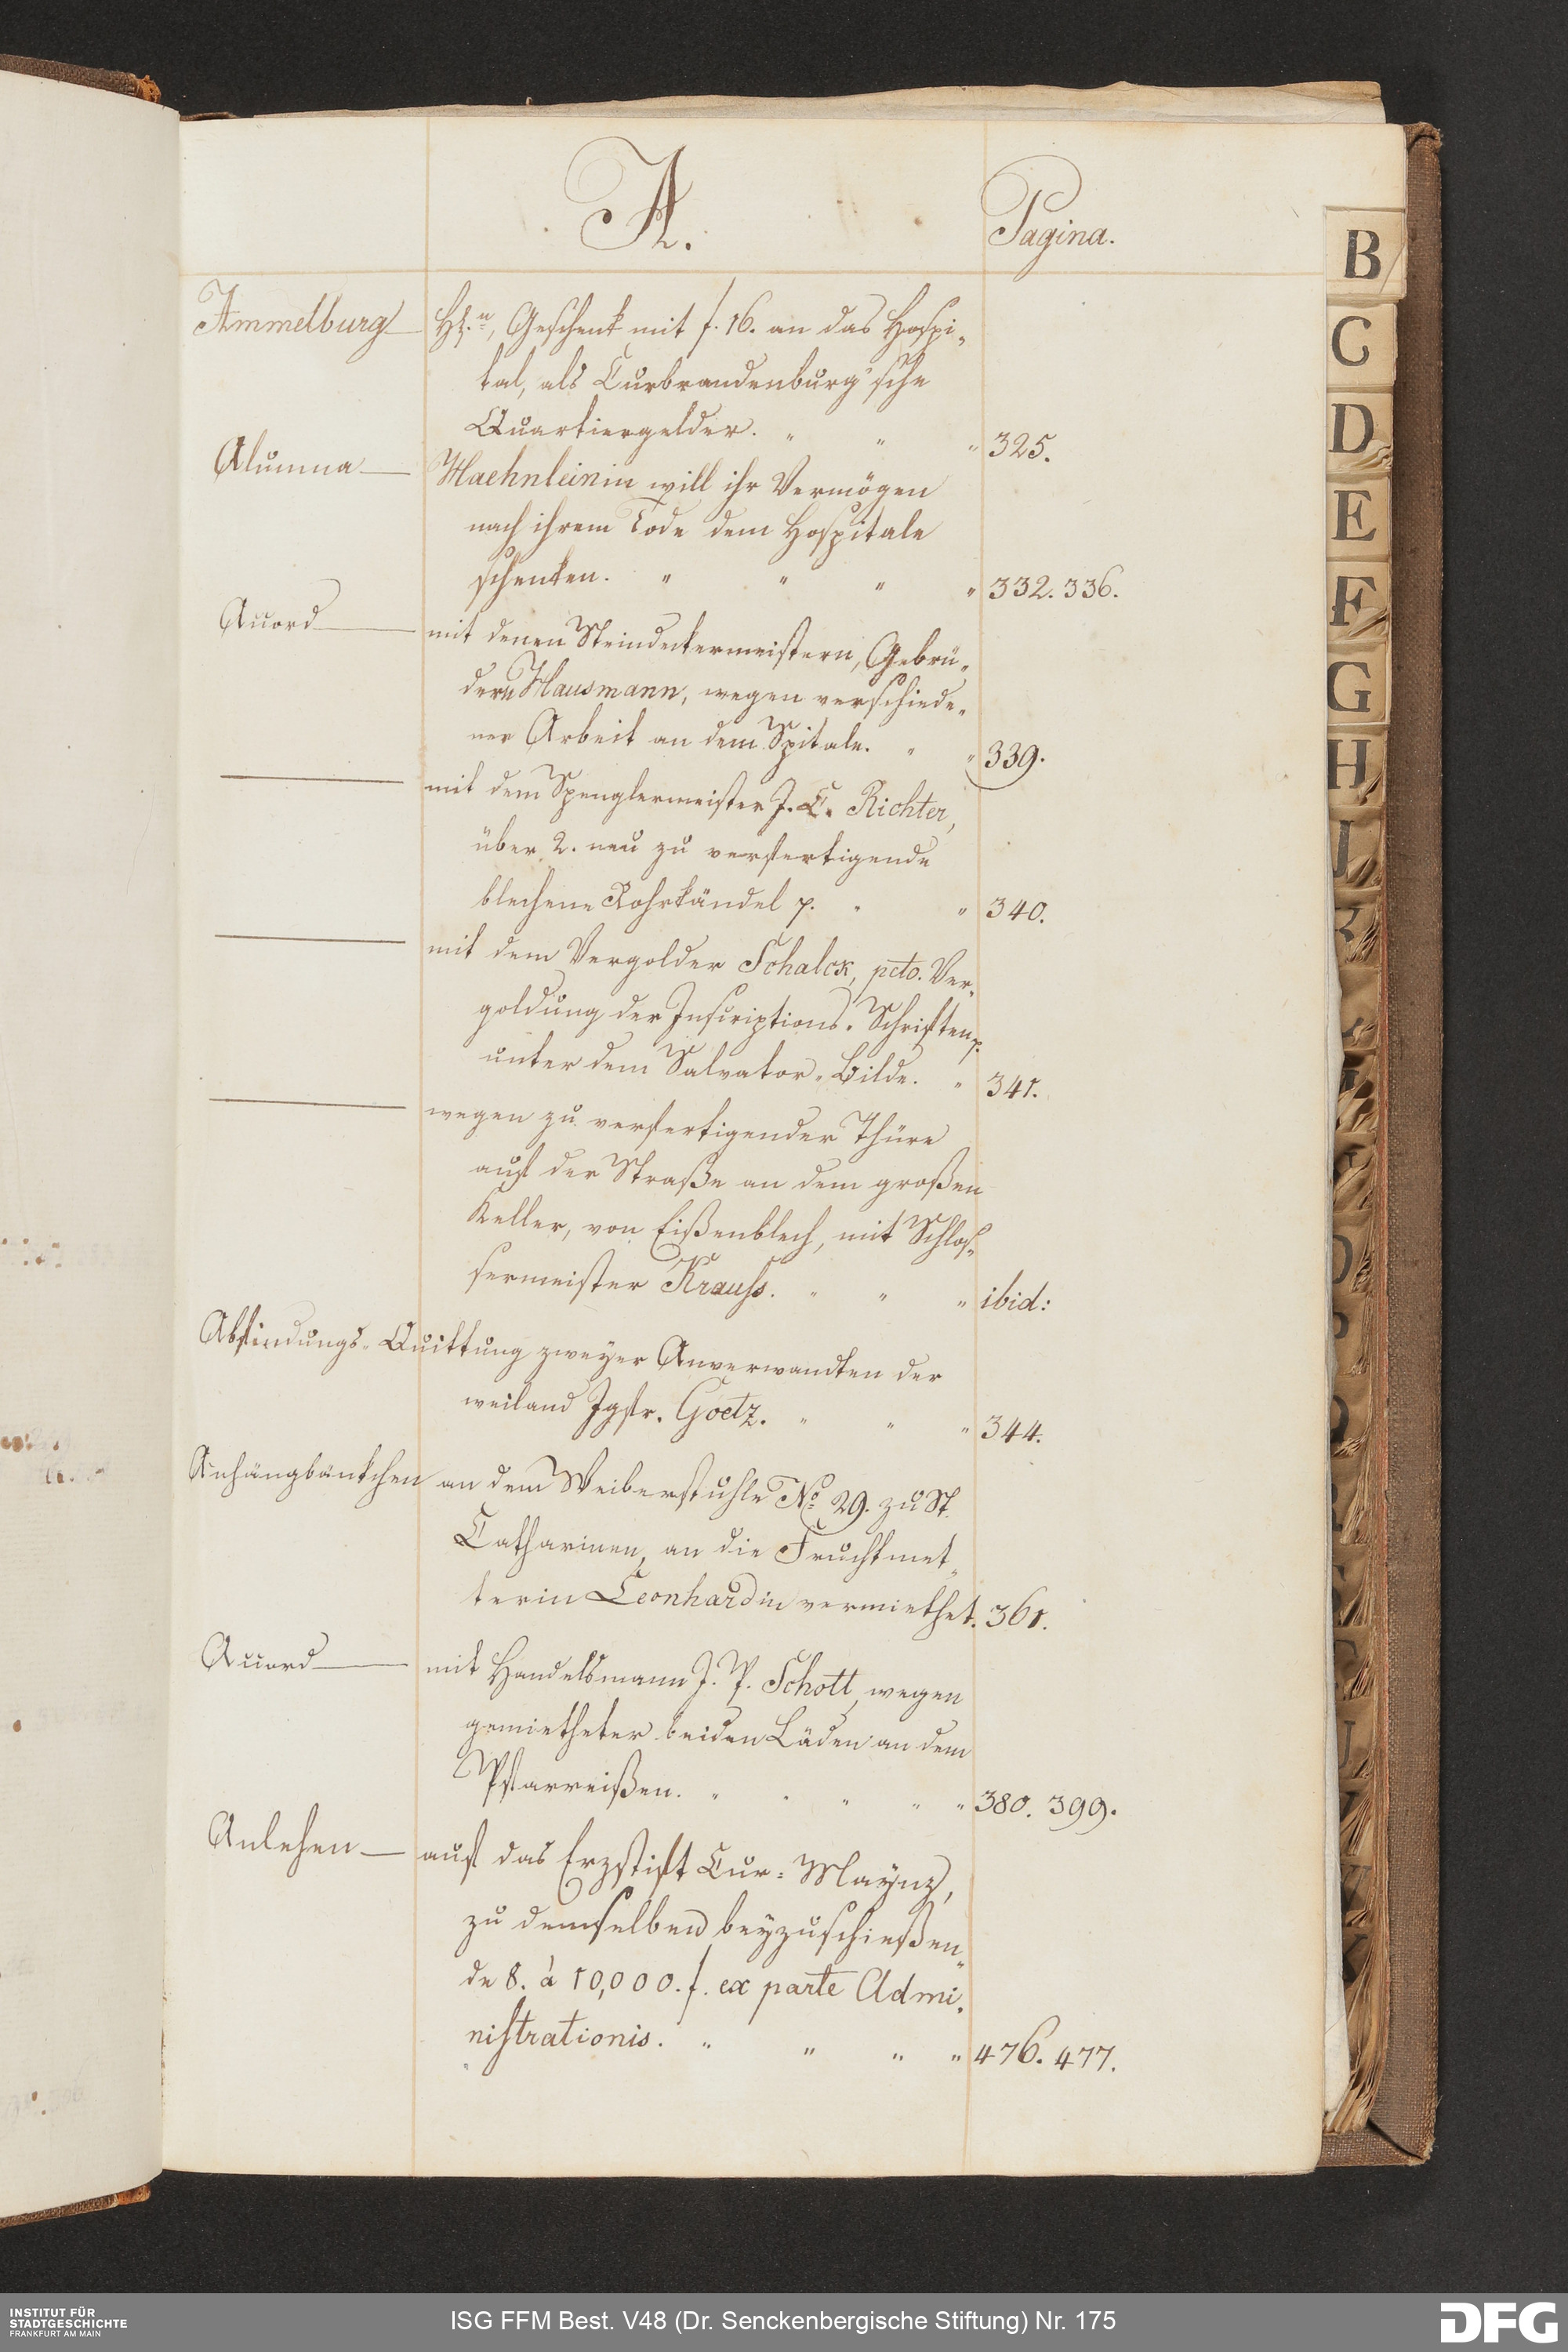 A.
Pagina.
Ammelburg — H., Geschenk mit f. 16. an das Hospi-
tal, als Curbrandenburg'sche
Quartiergelder. " " " 325.
Alumna — Haehnleinin will ihr Vermögen
nach ihrem Tode dem Hospitale
schenken. " " " " 332. 336.
Accord — mit denen Steindeckermeistern, Gebrü-
dern Hausmann, wegen verschiede-
ner Arbeit an dem Spitale. " " 339.
— mit dem Spenglermeister J. C. Richter,
über 2. neu zu verfertigende
blechene Rohrkändel p. " " 340.
— mit dem Vergolder Schalck, pcto. Ver-
goldung der Inscriptions-Schriften p.
unter dem Salvator-Bilde. " 341.
— wegen zu verfertigender Thüre
auf der Straße an dem großen
Keller, von Eißenblech, mit Schlos-
sermeister Krauss. " " " ibid:
Abfindungs-Quittung zweyer Anverwandten der
weiland Jgfr. Goetz. " " " 344.
Anhängbänkchen an dem Weiberstuhle No. 29. zu St.
Catharinen, an die Fruchtmet-
terin Leonhardin vermiethet. 361.
Accord — mit Handelsmann J. P. Schott, wegen
gemietheter beiden Läden an dem
Pfarreißen. " " " " " 380. 399.
Anlehen — auf das Erzstift Cur-Maynz,
zu demselben beyzuschießen-
de 8. à 10,000. f. ex parte Admi-
nistrationis. " " " " 476. 477.
B
C
D
E
F
G
H
J
INSTITUT FÜR
STADTGESCHICHTE
FRANKFURT AM MAIN
ISG FFM Best. V48 (Dr. Senckenbergische Stiftung) Nr. 175
DFG